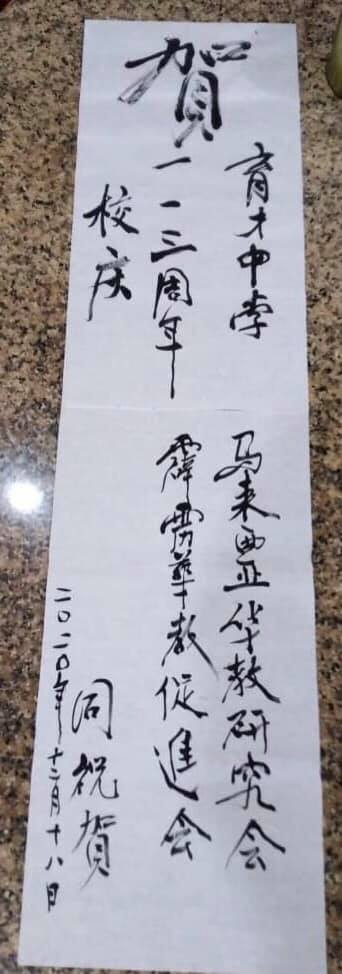 賀
育才中学
一一三周年
校庆
马来西亚华教研究会
霹雳華教促進会
同祝賀
二〇二〇年十二月十八日